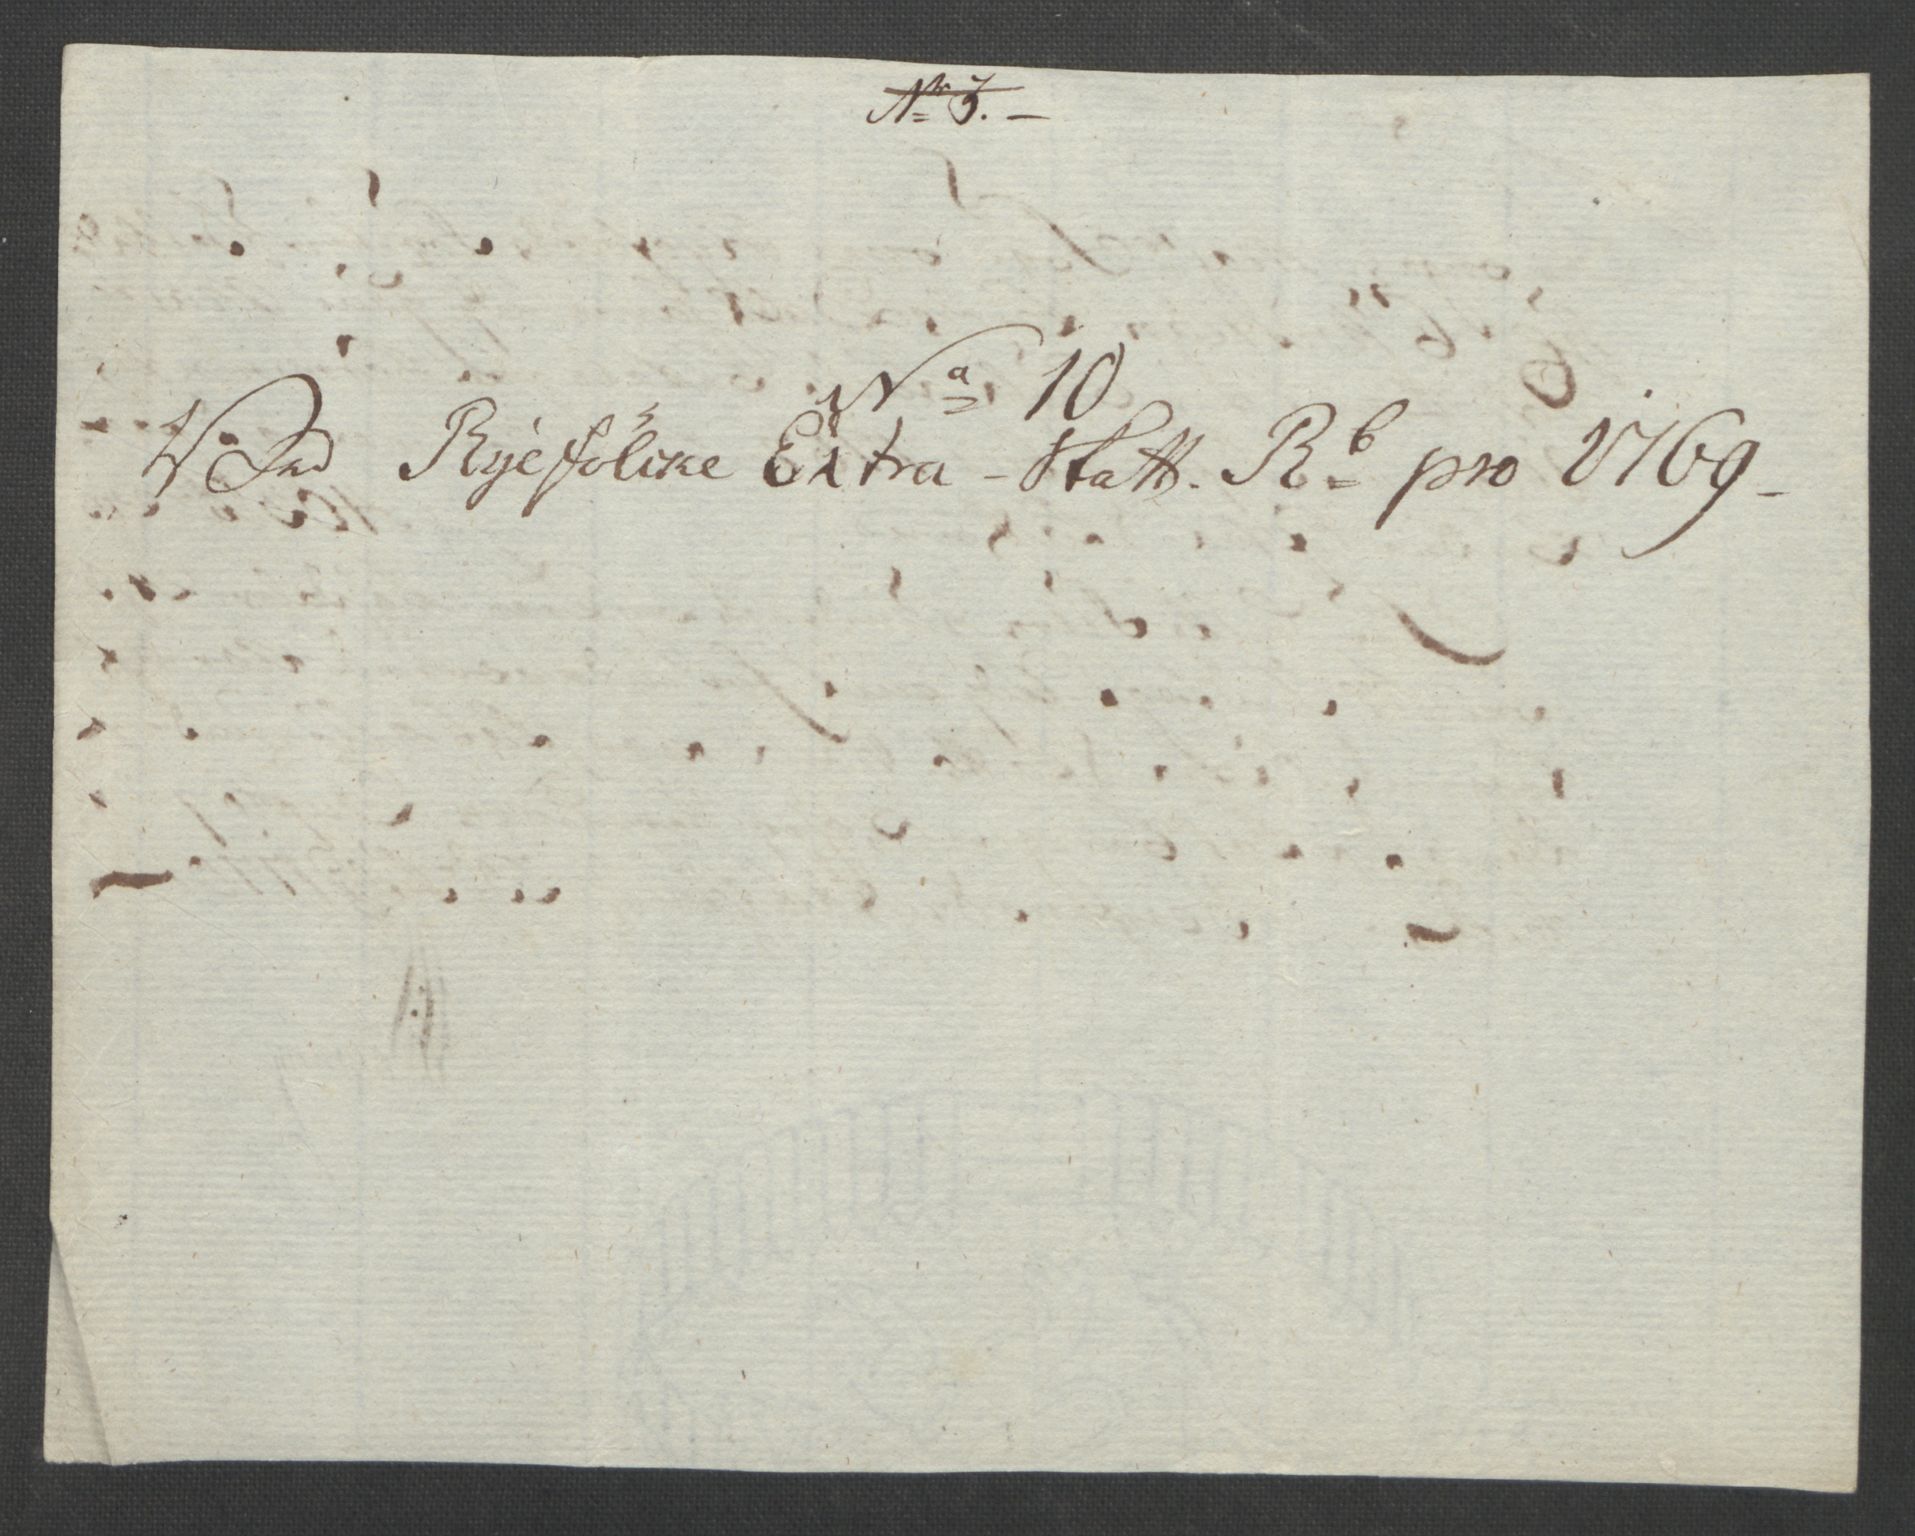 No 3.
No 10
Ved Ryefölcke Extra-Skatt. Rb pro 1769